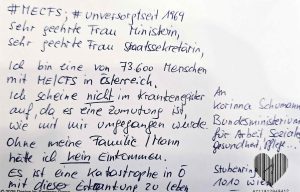 #MECFS; #unversorgtseit1969
Sehr geehrte Frau Ministerin,
Sehr geehrte Frau Staatssekretärin,
Ich bin eine von 73.600 Menschen
mit ME/CFS in Österreich.
Ich scheine nicht im Krankenregister
auf, da es eine Zumutung ist,
wie mit mir umgegangen wurde.
Ohne meine Familie / Mann
hätte ich kein Einkommen.
Es ist eine Katastrophe in Ö
mit dieser Erkrankung zu leben
An
Korinna Schumann
Bundesministerium
für Arbeit, Soziale
Gesundheit, Pflege...
Stubenring
1010 Wien